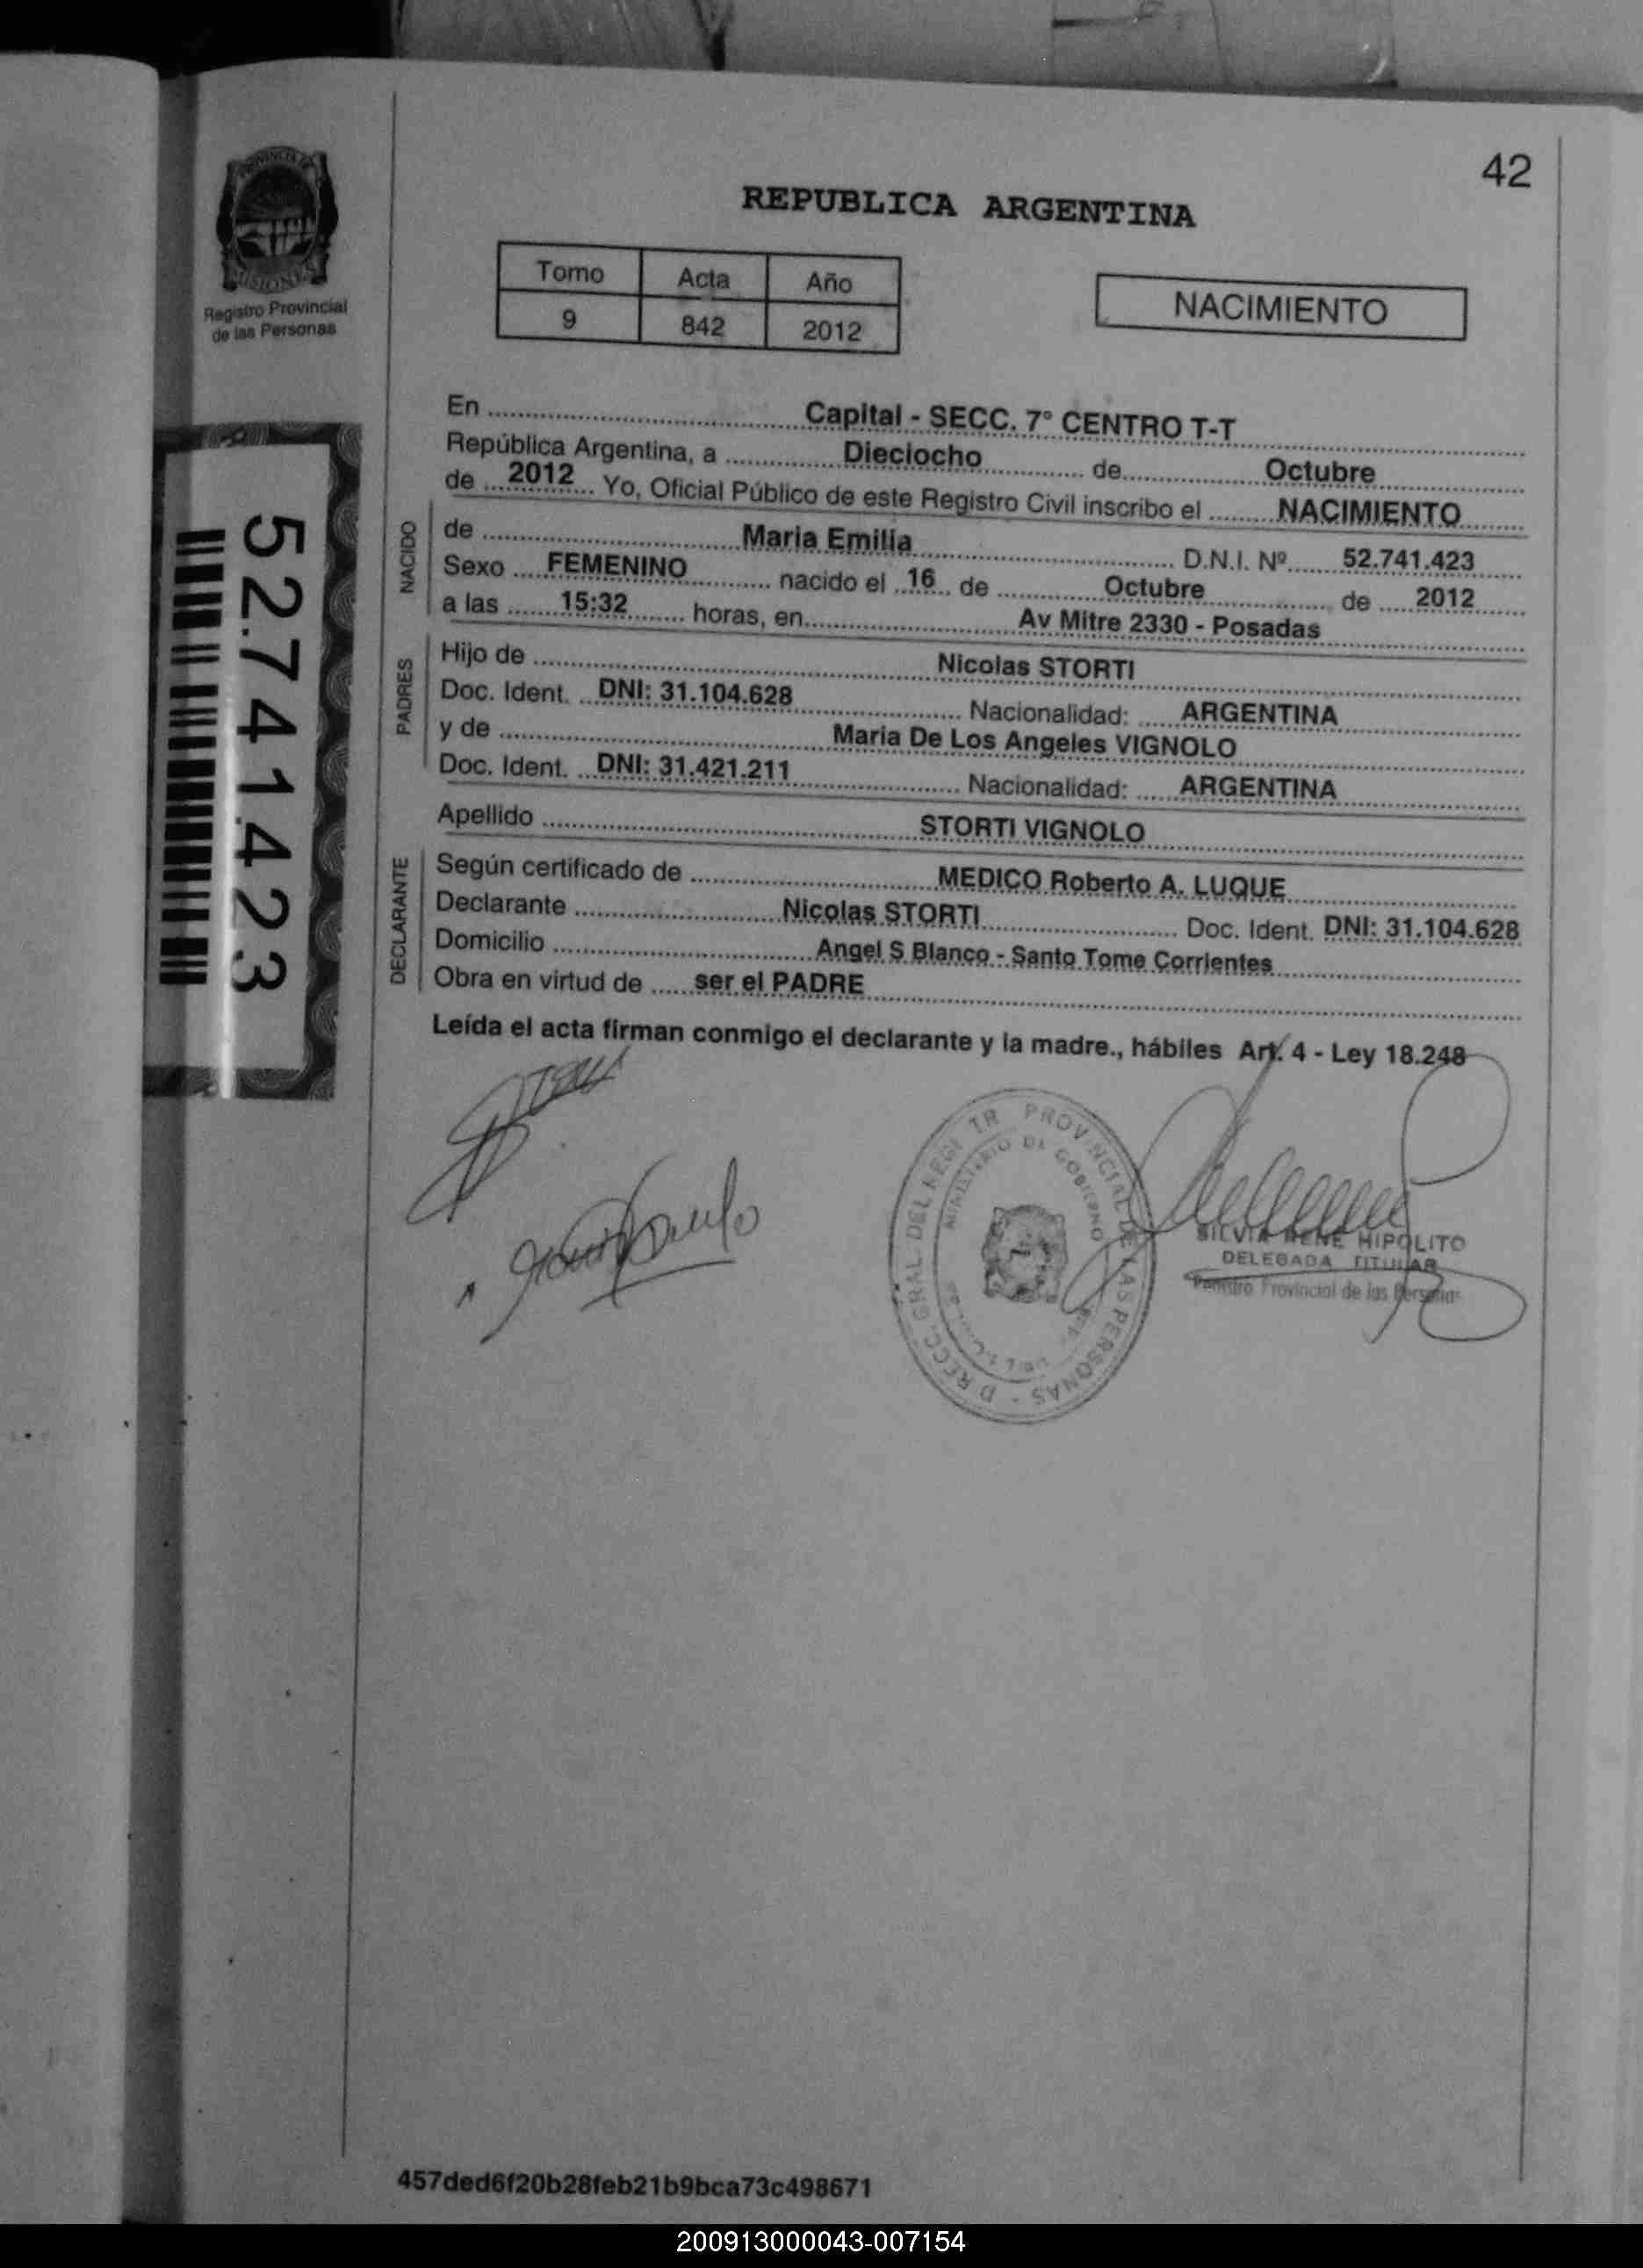 42
REPUBLICA ARGENTINA
PROVINCIA DE
MISIONES
Registro Provincial
de las Personas
Tomo Acta Año
9 842 2012
NACIMIENTO
52.741.423
En Capital - SECC. 7° CENTRO T-T
República Argentina, a Dieciocho de Octubre
de 2012 Yo, Oficial Público de este Registro Civil inscribo el NACIMIENTO
NACIDO
de Maria Emilia D.N.I. Nº 52.741.423
Sexo FEMENINO nacido el 16 de Octubre de 2012
a las 15:32 horas, en Av Mitre 2330 - Posadas
PADRES
Hijo de Nicolas STORTI
Doc. Ident. DNI: 31.104.628 Nacionalidad: ARGENTINA
y de Maria De Los Angeles VIGNOLO
Doc. Ident. DNI: 31.421.211 Nacionalidad: ARGENTINA
Apellido STORTI VIGNOLO
DECLARANTE
Según certificado de MEDICO Roberto A. LUQUE
Declarante Nicolas STORTI Doc. Ident. DNI: 31.104.628
Domicilio Angel S Blanco - Santo Tome Corrientes
Obra en virtud de ser el PADRE
Leída el acta firman conmigo el declarante y la madre., hábiles Art. 4 - Ley 18.248
PROVINCIAL DE LAS PERSONAS
MINISTERIO DE GOBIERNO
SILVIA RENE HIPOLITO
DELEGADA TITULAR
Registro Provincial de las Personas
457ded6f20b28feb21b9bca73c498671
200913000043-007154